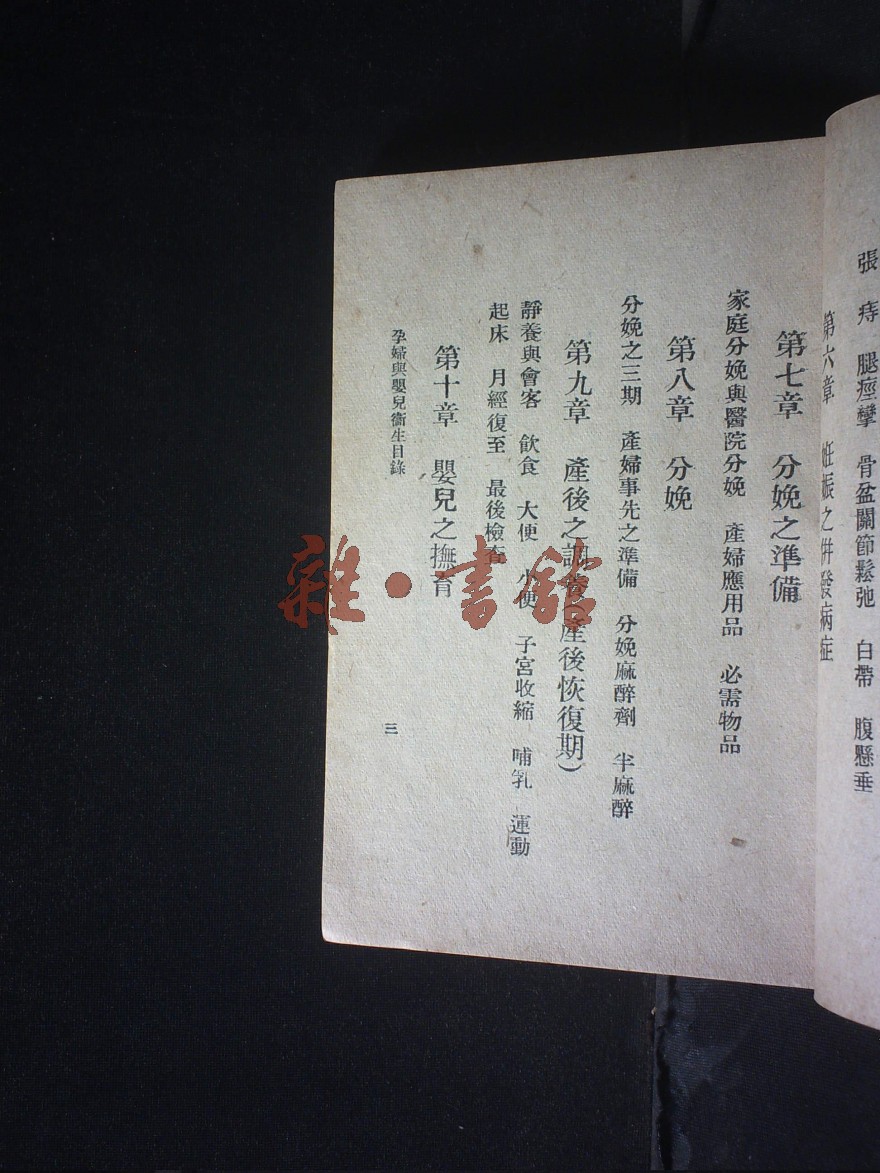 張　痔　腿痙攣　骨盆關節鬆弛　白帶　腹懸垂
第六章　妊娠之併發病症
第七章　分娩之準備
家庭分娩與醫院分娩　產婦應用品　必需物品
第八章　分娩
分娩之三期　產婦事先之準備　分娩麻醉劑　半麻醉
第九章　產後之調養（產後恢復期）
靜養與會客　飲食　大便　小便　子宮收縮　哺乳　運動
起床　月經復至　最後檢查
第十章　嬰兒之撫育
孕婦與嬰兒衞生目錄
三
雜·書館